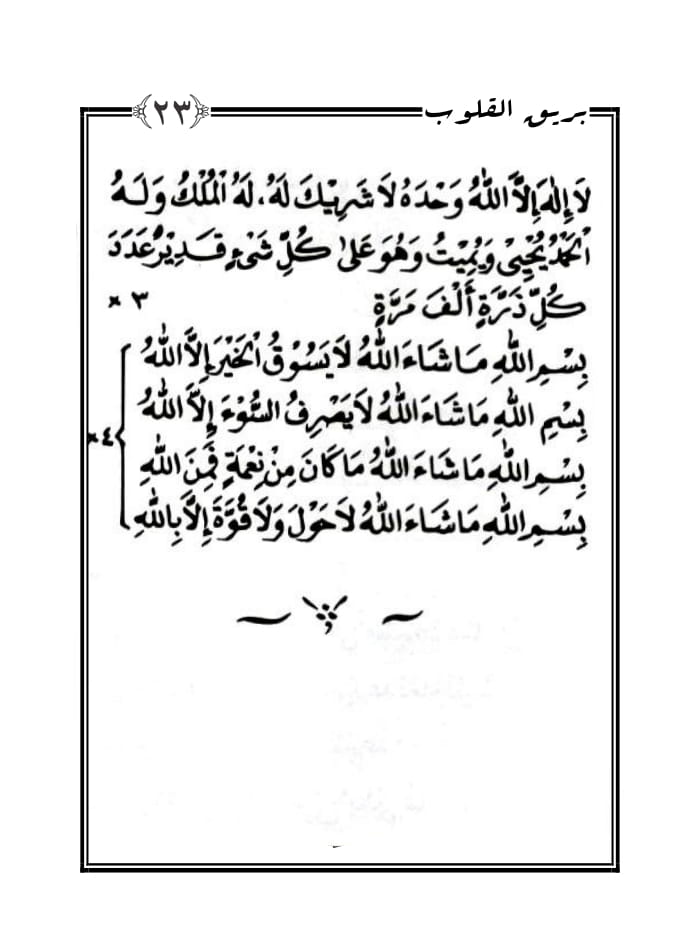 بريق القلوب ﴿٢٣﴾
لَا إِلٰهَ إِلَّا اللهُ وَحْدَهُ لَا شَرِيْكَ لَهُ، لَهُ الْمُلْكُ وَلَهُ
الْحَمْدُ يُحْيِيْ وَيُمِيْتُ وَهُوَ عَلَىٰ كُلِّ شَيْءٍ قَدِيْرٌ عَدَدَ
كُلِّ ذَرَّةٍ أَلْفَ مَرَّةٍ ٣ ×
بِسْمِ اللهِ مَا شَاءَ اللهُ لَا يَسُوْقُ الْخَيْرَ إِلَّا اللهُ
بِسْمِ اللهِ مَا شَاءَ اللهُ لَا يَصْرِفُ السُّوْءَ إِلَّا اللهُ
٤×
بِسْمِ اللهِ مَا شَاءَ اللهُ مَا كَانَ مِنْ نِعْمَةٍ فَمِنَ اللهِ
بِسْمِ اللهِ مَا شَاءَ اللهُ لَا حَوْلَ وَلَا قُوَّةَ إِلَّا بِاللهِ